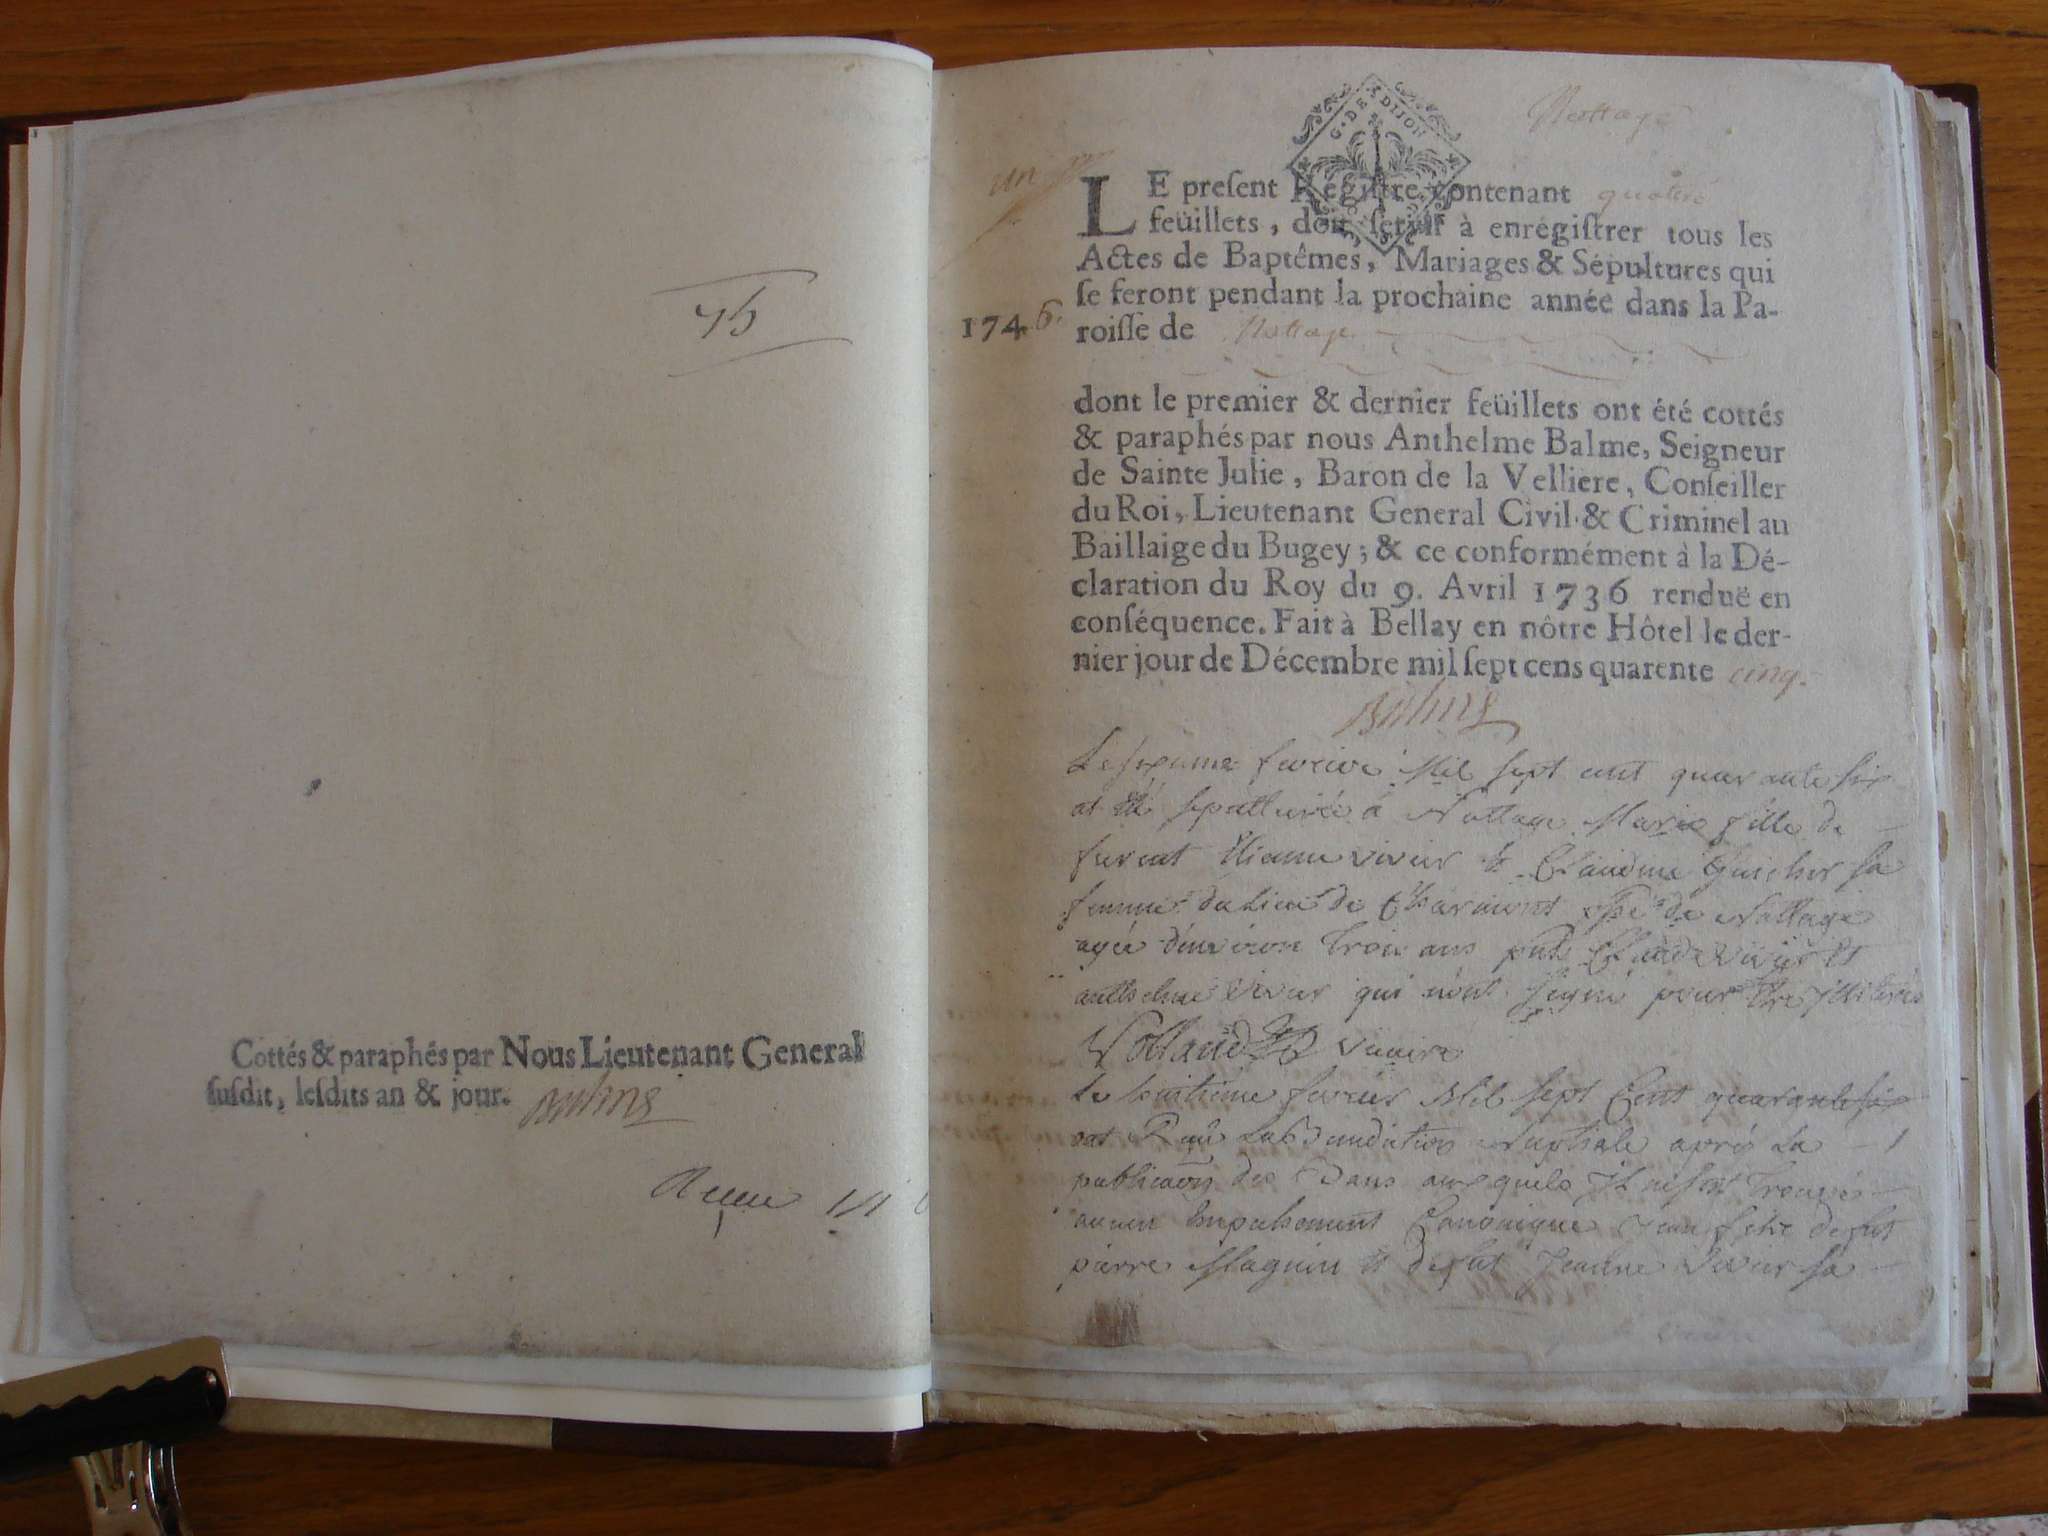 45
Cottés & paraphés par Nous Lieutenant General
susdit, lesdits an & jour.
G. DE DIJON
Nattage
un
LE present Régistre contenant quatre
feüillets, doit servir à enrégistrer tous les
Actes de Baptêmes, Mariages & Sépultures qui
se feront pendant la prochaine année dans la Pa-
1746. roisse de Nattage
dont le premier & dernier feüillets ont été cottés
& paraphés par nous Anthelme Balme, Seigneur
de Sainte Julie, Baron de la Velliere, Conseiller
du Roi, Lieutenant General Civil & Criminel au
Baillaige du Bugey; & ce conformément à la Dé-
claration du Roy du 9. Avril 1736 renduë en
conséquence. Fait à Bellay en nôtre Hôtel le der-
nier jour de Décembre mil sept cens quarente cinq.
Balme
Le fevrier Mil sept cent quarante six
at été sepulturée à Nattage Marie fille de
Etienne vivier & Claudine Guicher sa
femme du Lieu de Charmont psse de Nattage
agée d'environ Trois ans Claude vivier Et
anthelme vivier qui n'ont signé pour Etre
vicaire
Le huitieme fevrier Mil sept Cent quarante six
ont La Benediction Nuptiale aprés La
publicaõn des Bans auxquels Il ne s'est Trouvé
aucun Empechement Canonique Jean fils de fut
pierre Magnin & de fut Jeanne vivier sa